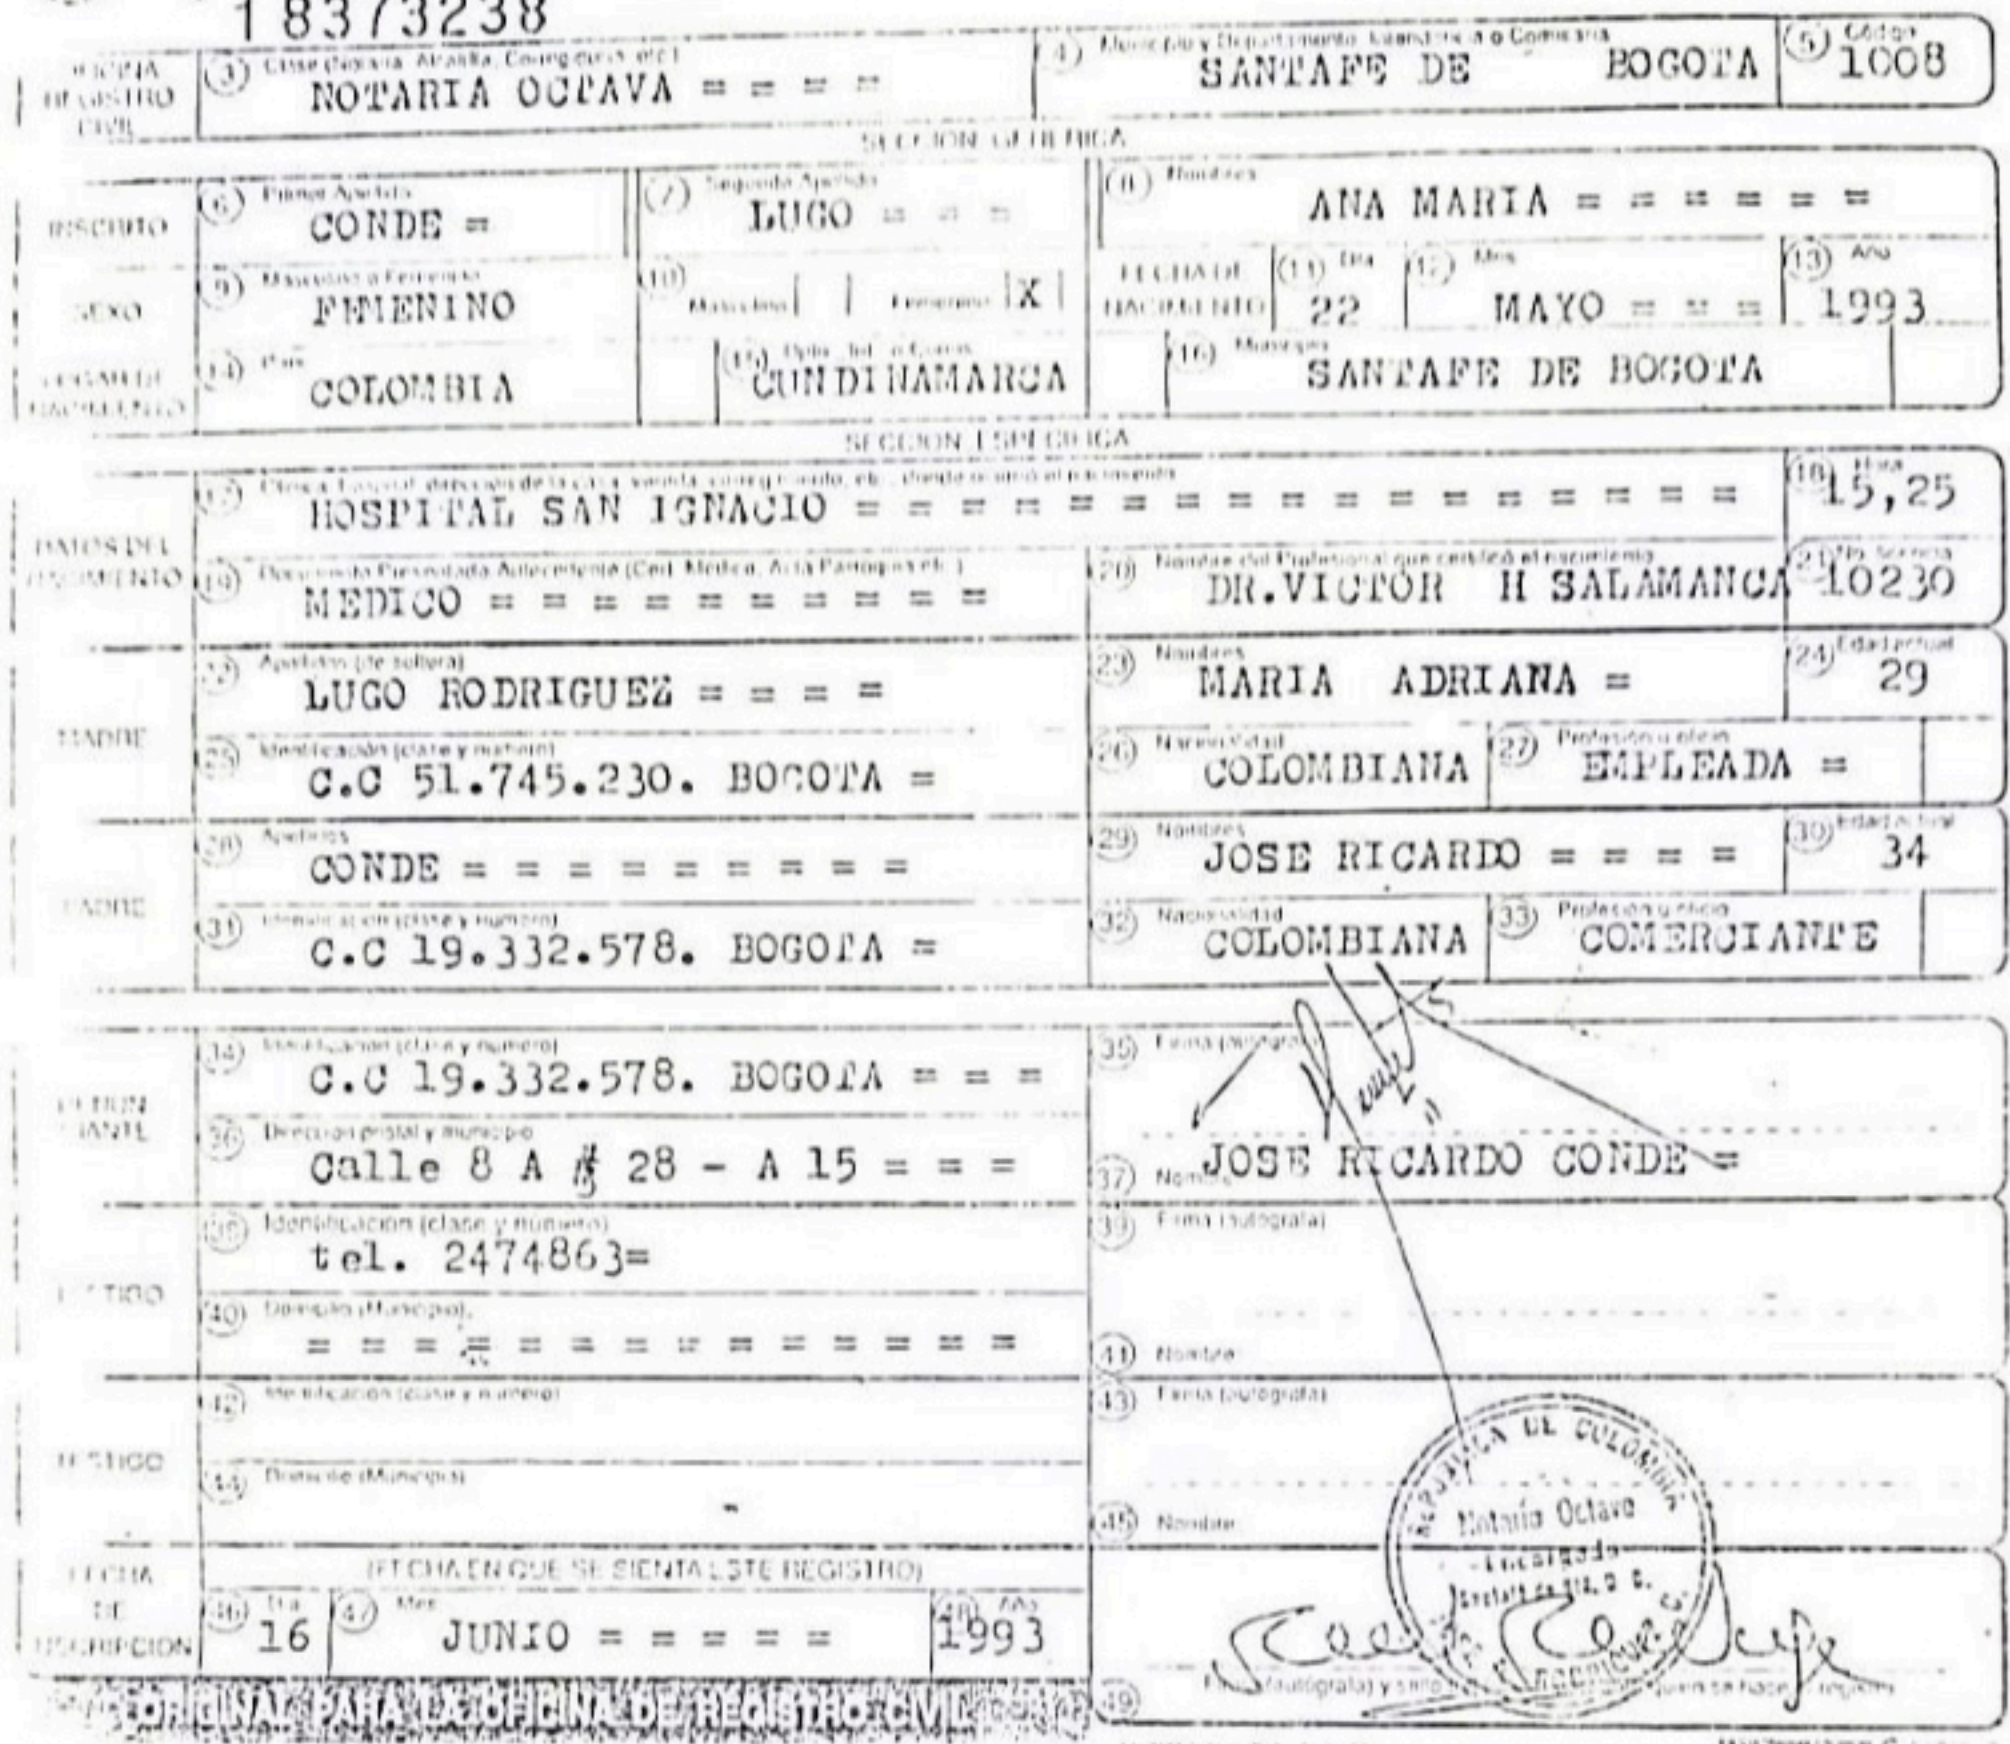 18373238
OFICINA REGISTRO CIVIL
3 Clase (Notaría, Alcaldía, Corregiduría, etc.)
NOTARIA OCTAVA = = = =
4 Municipio y Departamento, Intendencia o Comisaría
SANTAFE DE BOGOTA
5 Código
1008
SECCION GENERICA
INSCRITO
6 Primer Apellido
CONDE =
7 Segundo Apellido
LUGO = = =
8 Nombres
ANA MARIA = = = = = =
SEXO
9 Masculino o Femenino
FEMENINO
10 Masculino Femenino X
FECHA DE NACIMIENTO
11 Día
22
12 Mes
MAYO = = =
13 Año
1993
LUGAR DE NACIMIENTO
14 País
COLOMBIA
15
CUNDINAMARCA
16 Municipio
SANTAFE DE BOGOTA
SECCION ESPECIFICA
DATOS DEL NACIMIENTO
17 Clínica, hospital, dirección de la casa, vereda, corregimiento, etc., donde ocurrió el nacimiento
HOSPITAL SAN IGNACIO = = = = = = = = = = = = = = = = =
18 Hora
15,25
19 Documento Presentado Antecedente (Cert. Médico, Acta Parroquial etc.)
MEDICO = = = = = = = = = =
20 Nombre del Profesional que certificó el nacimiento
DR.VICTOR H SALAMANCA
21 No. licencia
10230
MADRE
22 Apellidos (de soltera)
LUGO RODRIGUEZ = = = =
23 Nombres
MARIA ADRIANA =
24 Edad actual
29
25 Identificación (clase y número)
C.C 51.745.230. BOGOTA =
26 Nacionalidad
COLOMBIANA
27 Profesión u oficio
EMPLEADA =
PADRE
28 Apellidos
CONDE = = = = = = = = =
29 Nombres
JOSE RICARDO = = = =
30 Edad actual
34
31 Identificación (clase y número)
C.C 19.332.578. BOGOTA =
32 Nacionalidad
COLOMBIANA
33 Profesión u oficio
COMERCIANTE
34 Identificación (clase y número)
C.C 19.332.578. BOGOTA = = =
35 Firma (autógrafa)
36 Dirección postal y municipio
Calle 8 A # 28 - A 15 = = =
37 Nombre
JOSE RICARDO CONDE =
TESTIGO
38 Identificación (clase y número)
tel. 2474863=
39 Firma (autógrafa)
40 Domicilio (Municipio)
= = = = = = = = = = = = = =
41 Nombre
TESTIGO
42 Identificación (clase y número)
43 Firma (autógrafa)
44 Domicilio (Municipio)
45 Nombre
REPUBLICA DE COLOMBIA
Notario Octavo
Encargado
FECHA DE INSCRIPCION
(FECHA EN QUE SE SIENTA ESTE REGISTRO)
46 Día
16
47 Mes
JUNIO = = = = =
48 Año
1993
49
ORIGINAL PARA LA OFICINA DE REGISTRO CIVIL